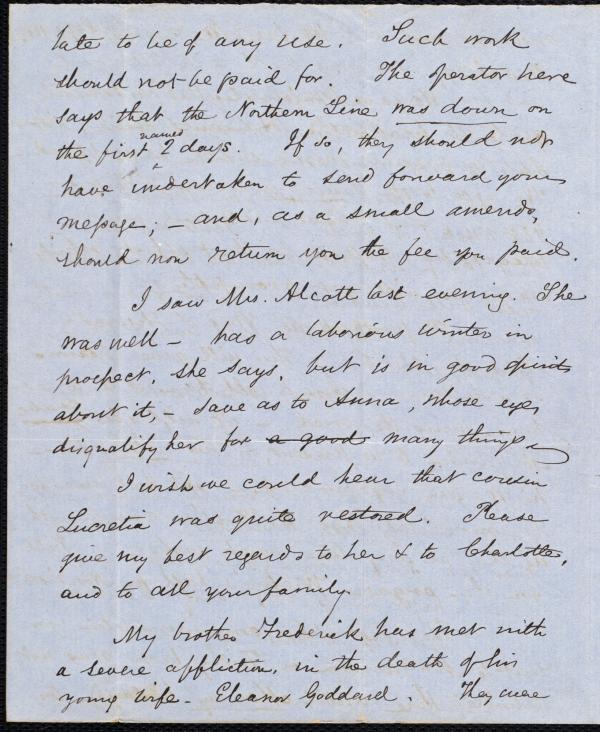 late to be of any use. Such work
should not be paid for. The operator here
says that the Northern Line was down on
the first named 2 days. If so, they should not
have undertaken to send forward your
message; – and, as a small amends,
should now return you the fee you paid.
I saw Mrs. Alcott last evening. She
was well – has a laborious winter in
prospect, she says, but is in good spirits
about it, – save as to Anna, whose eyes
disqualify her for a good many things.
I wish we could hear that cousin
Lucretia was quite restored. Please
give my best regards to her & to Charlotte,
and to all your family.
My brother Frederick has met with
a severe affliction, in the death of his
young wife – Eleanor Goddard. They were